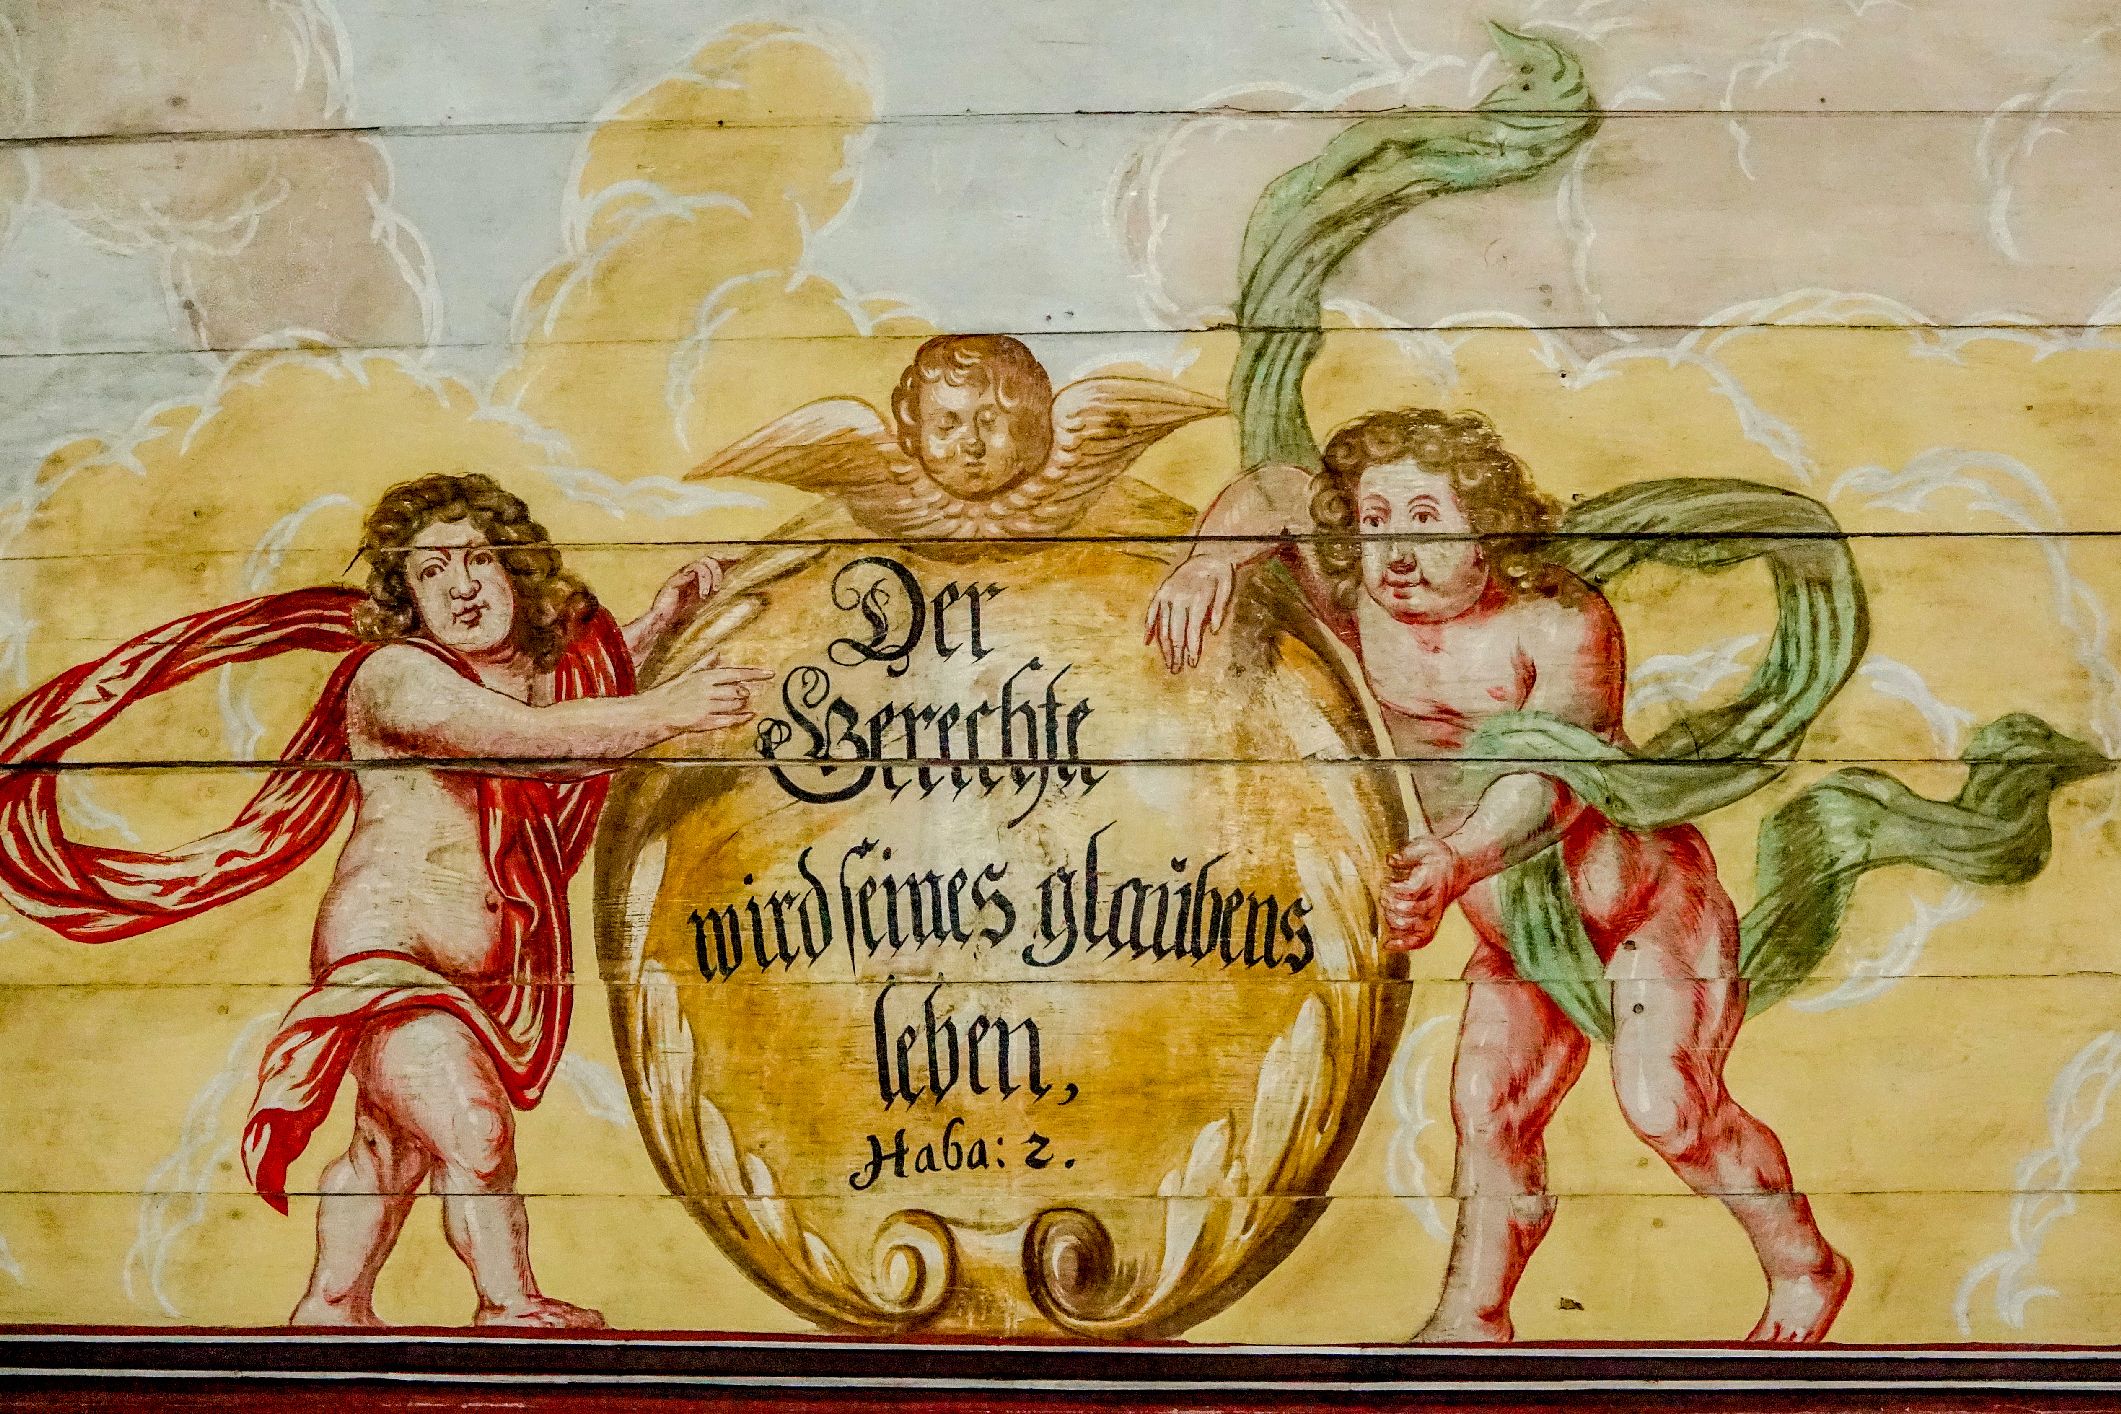 Der
Gerechte
wird seines glaubens
leben,
Haba: 2.